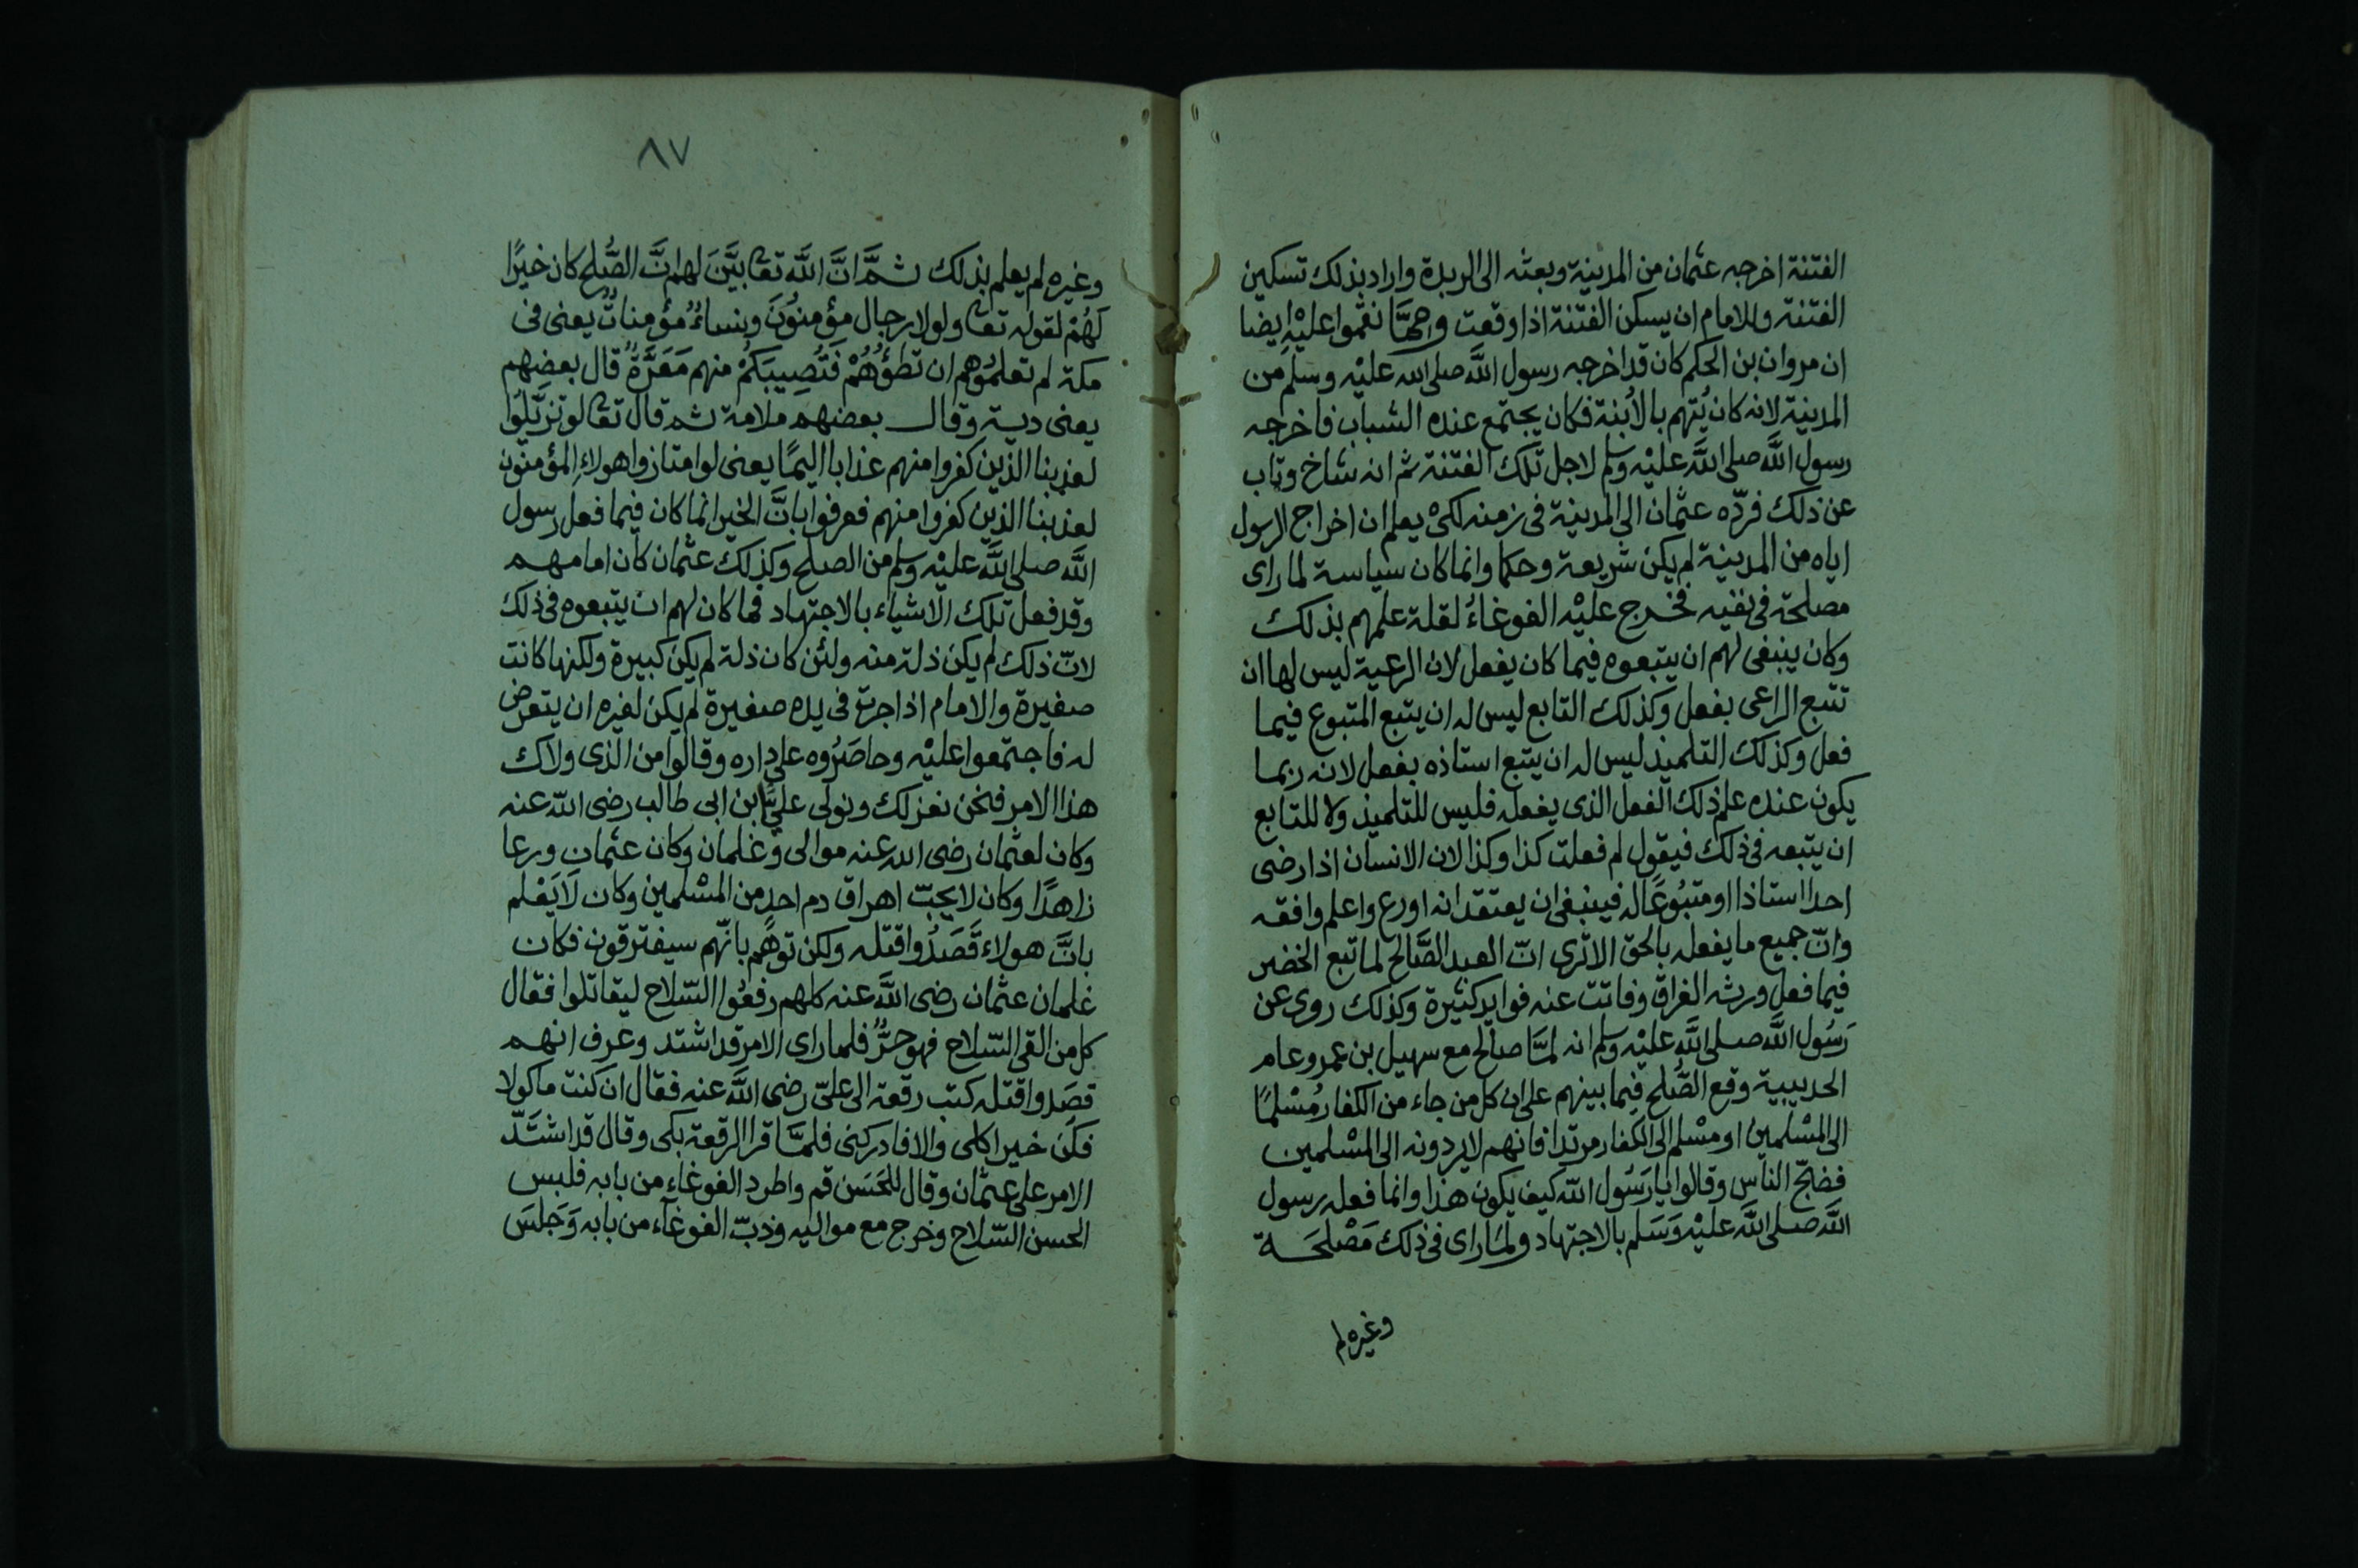 الفتنة اخرجه عثمان من المدينة وبعثه الى الربدة واراد بذلك تسكين
الفتنة وللامام ان يسكن الفتنة اذا وقعت وممَّا نقموا عليْه ايضا
ان مروان بن الحكم كان قد اخرجه رسول اللَّه صلى الله عليْه وسلم من
المدينة لانه كان يُتهم بالأبنة فكان يجتمع عنده الشباب فاخرجه
رسول اللَّه صلى اللَّه عليْه وسلم لاجل تلك الفتنة ثم انه شاخ وتاب
عن ذلك فردّه عثمان الى المدينة فى زمنه لكىْ يعلم ان اخراج الرسول
اياه من المدينة لم يكن شريعة وحكما وانما كان سياسة لما راى
مصلحة فى نفيه فخرج عليْه الغوغاءُ لقلة علمهم بذلك
وكان ينبغى لهم ان يتبعوه فيما كان يفعل لان الرعية ليس لها ان
تتبع الراعى بفعل وكذلك التابع ليس له ان يتبع المتبوع فيما
فعل وكذلك التلميذ ليس له ان يتبع استاذه بفعل لانه ربما
يكون عنده علم ذلك الفعل الذى يفعله فليس للتلميذ ولا للتابع
ان يتبعه فى ذلك فيقول لم فعلت كذا وكذا لان الانسان اذا رضى
احدا استاذا او متبُوعًا له فينبغى ان يعتقد انه اورع واعلم وافقه
وانّ جميع ما يفعله بالحق الا ترى انّ العبد الصَّالح لما تبع الخضر
فيما فعل ورثه الفراق وفاتت عنه فوايد كثيرة وكذلك روى عن
رَسُول اللَّه صلى اللَّه عليْه وسلم انه لمَّا صالح مع سهيل بن عمرو عام
الحديبية وقع الصُّلح فيما بينهم على ان كل من جاء من الكفار مُسْلمًا
الى المسْلمين او مسْلم الى الكفار مرتدا فانهم لا يردونه الى المسْلمين
فضجّ الناس وقالوا يا رَسُول اللّه كيف يكون هذا وانما فعله رسول
اللَّه صلى اللَّه عليْه وَسَلم بالاجتهاد ولما راى فى ذلك مَصْلحَة
وغيره لم
٨٧
وغيره لم يعلم بذلك ثمَّ انَّ اللَّه تعا بيَّنَ لهم انَّ الصُّلح كان خيرًا
لَهُمْ لقوله تعا ولولا رجال مؤمنوُنَ ونساءٌ مؤمناتٌ يعنى فى
مكة لم تعلموُهم ان تطؤُهُمْ فَتُصِيبَكُمْ منهم مَعَرَّةٌ قال بعضهم
يعنى دية وقال بعضهم ملامة ثم قال تعا لو تزيَّلوُا
لعذبنا الذين كفروا منهم عذابا اليمًا يعنى لو امتازوا هولاءِ المؤمنون
لعذبنا الذين كفروا منهم فعرفوا بانَّ الخير انما كان فيما فعل رسول
اللَّه صلى اللَّه عليْه وسلم من الصلح وكذلك عثمان كان امامهم
وقد فعل تلك الاشياء بالاجتهاد فما كان لهم ان يتبعوه فى ذلك
لانّ ذلك لم يكن ذلة منه ولئن كان ذلة لم يكن كبيرة ولكنها كانت
صغيرة والامام اذا جرت فى يده صغيرة لم يكن لغيره ان يتعرض
له فاجتمعوا عليْه وحاصَرُوه على داره وقالوا من الذى ولاك
هذا الامر فنحن نعزلك ونولى عليًّا بن ابى طالب رضى اللّه عنه
وكان لعثمان رضى الله عنه موالى وغلمان وكان عثمان ورعا
زاهدًا وكان لا يحبّ اهراق دم احدٍ من المسْلمين وكان لَا يَعْلم
بانَّ هولاء قَصَدُوا قتله ولكن توهَّم بانّهم سيفترقون فكان
غلمان عثمان رضى اللَّه عنه كلهم رفعُوا السّلاح ليقاتلوا فقال
كل من القى السّلاح فهو حرٌّ فلما راى الامر قد اشتد وعرف انهم
قصَدوا قتله كتب رقعة الى علىّ رضى اللَّه عنه فقال ان كنت ماكولا
فكن خير اكلى والا فادركنى فلمَّا قرا الرقعة بكى وقال قد اشتَدّ
الامر على عثمان وقال للحَسَن قم واطرد الغوغاء من بابه فلبس
الحسن السّلاح وخرج مع مواليه وذبّ الغوغآء من بابه وَجَلسَ